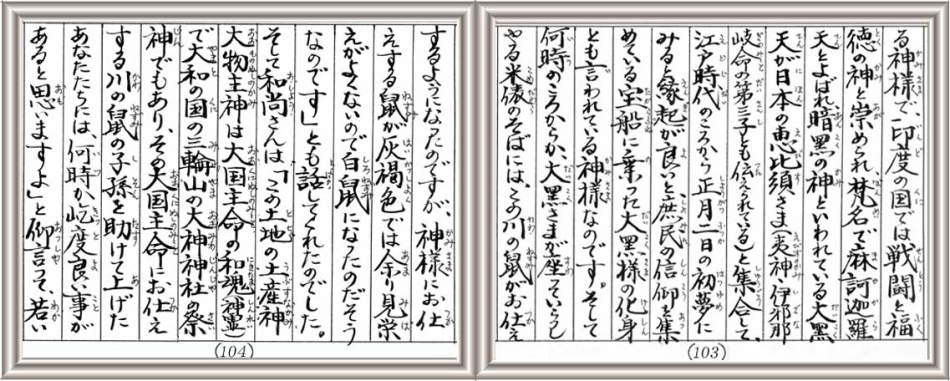 る神様で、印度の国では戦闘と福
徳の神と崇められ、梵名で麻訶迦羅
天とよばれ暗黒の神といわれている大黒
天が日本の恵比須さま(夷神・伊邪那
岐命の第三子とも伝えられている)と集合して、
江戸時代のころから正月二日の初夢に
みると縁起が良いと、庶民の信仰を集
めている宝船に乗った大黒様の化身
とも言われている神様なのです。そして
何時のころからか、大黒さまが座っていらし
やる米俵のそばには、この川の鼠がお仕え
(103)
するようになったのですが、神様にお仕
えする鼠が灰褐色では余り見栄
えがよくないので白鼠になったのだそう
なのです」とも話してくれたのでした。
そして和尚さんは、「この土地の土産神
大物主神は大国主命の和魂(神霊)
で大和の国の三輪山の大神神社の祭
神でもあり、その大国主命にお仕え
する川の鼠の子孫を助けて上げた
あなたたちには、何時か屹度良い事が
あると思いますよ」と仰言って、若い
(104)